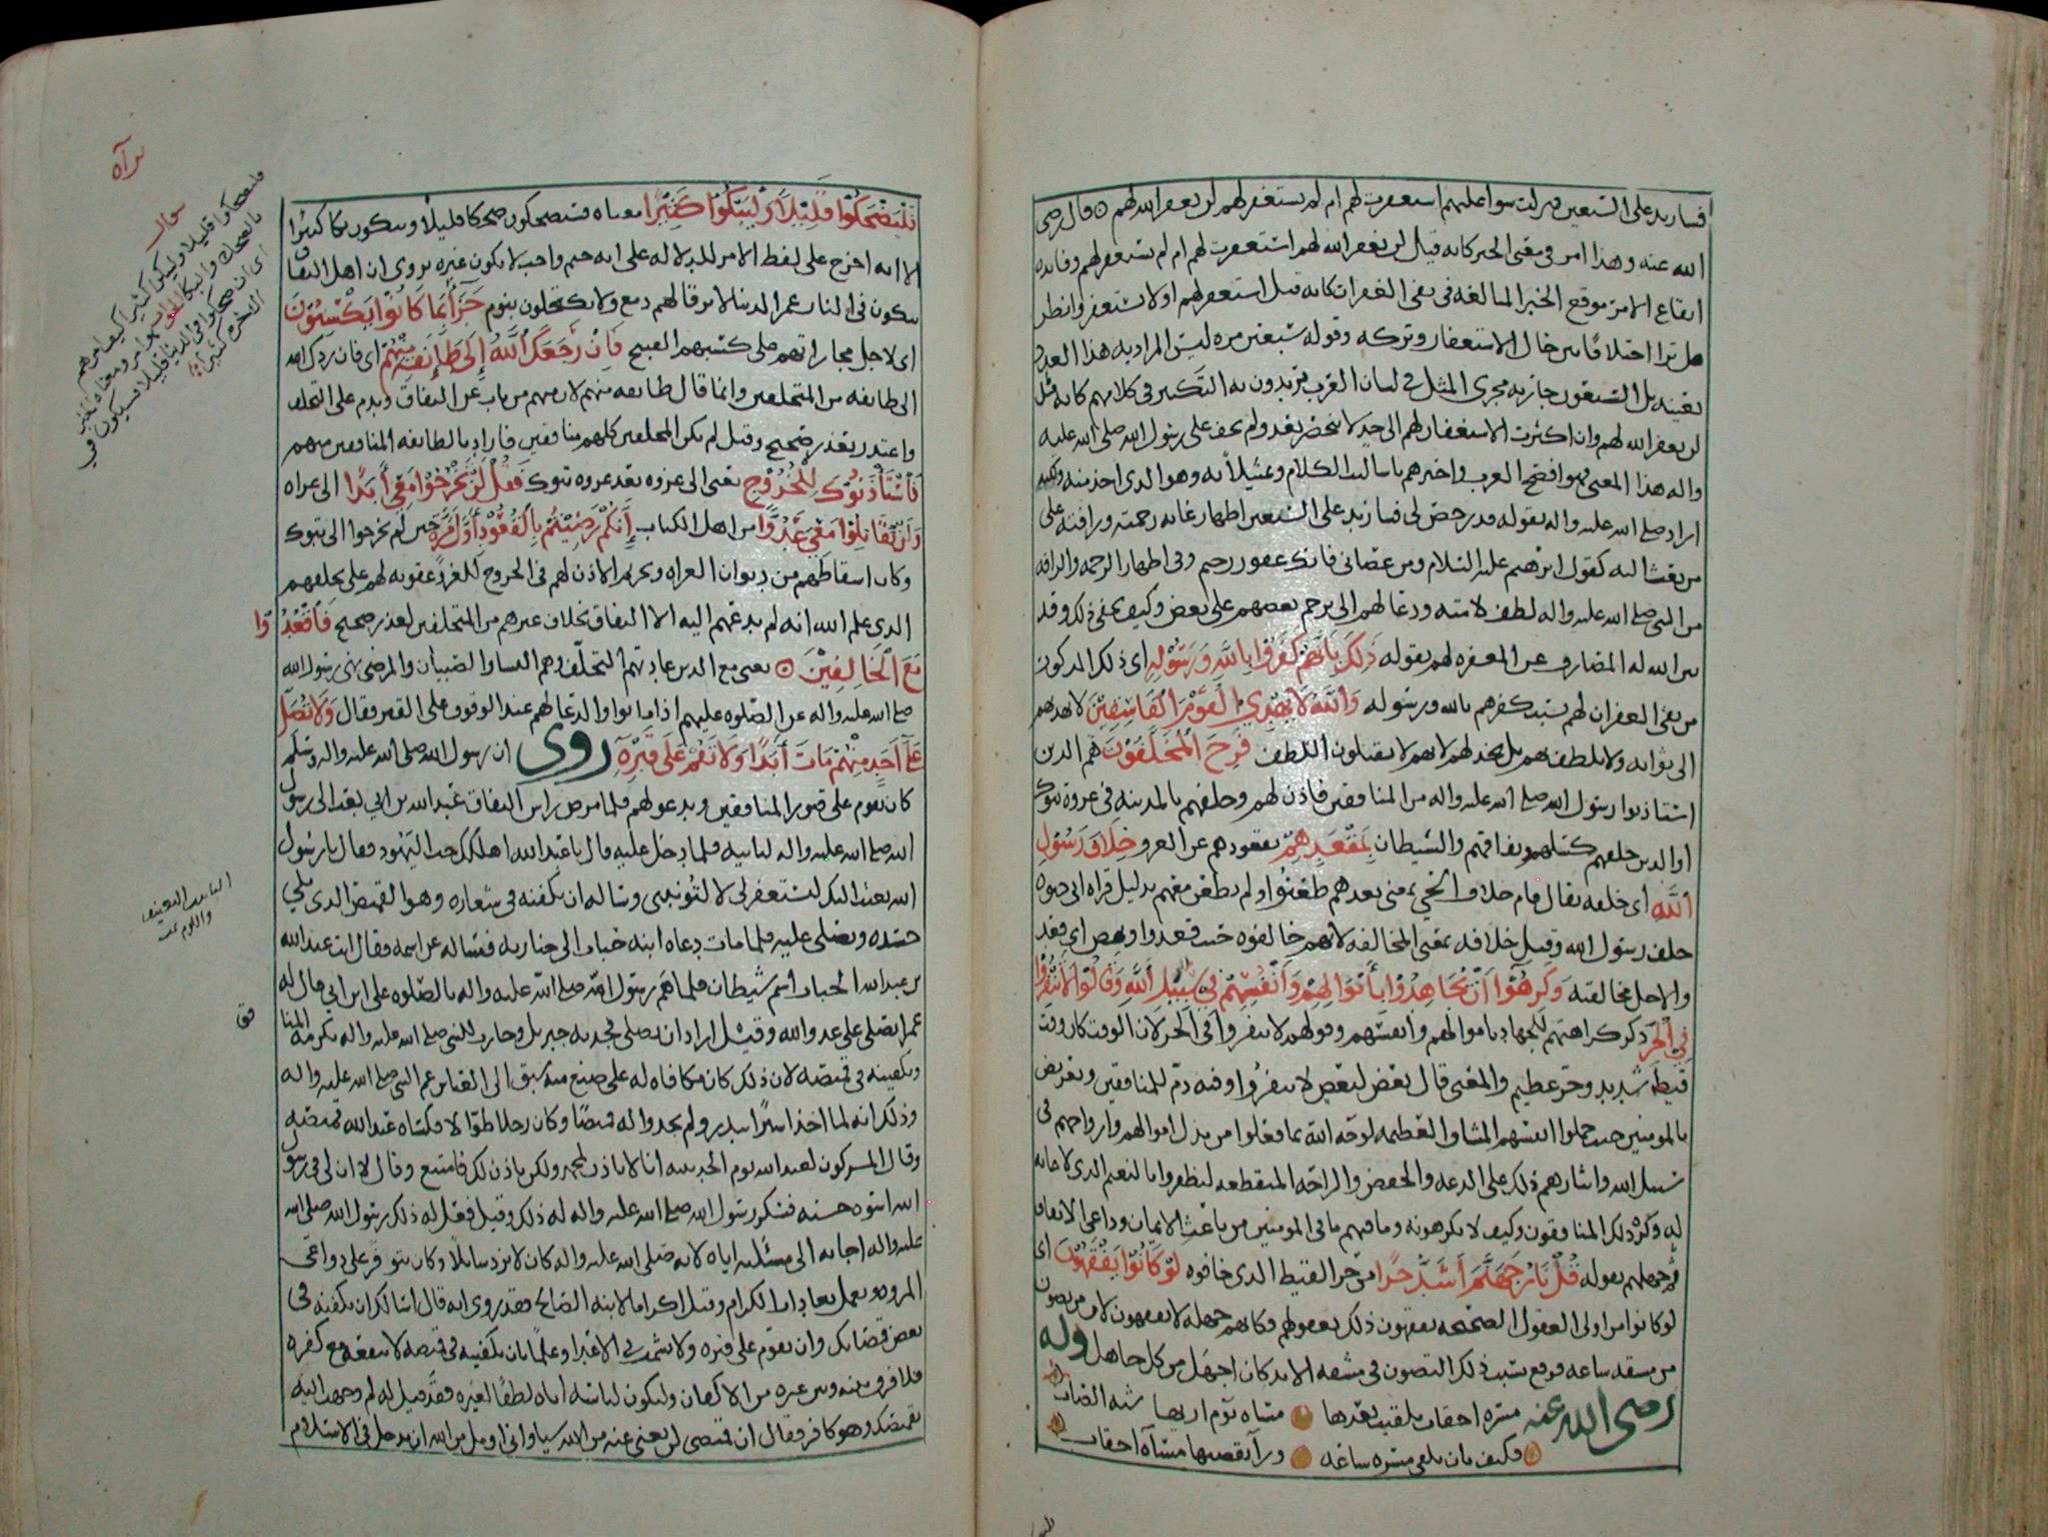 فسازيد على السبعين فنزلت سوا عليهم استغفرت لهم ام لم تستغفر لهم لن يغفر الله لهم ۞ قال رضى
الله عنه وهذا امر فى معنى الخبر كانه قيل لن يغفر الله لهم استغفرت لهم ام لم تستغفر لهم وفايده
ايقاع الامر موقع الخبر المبالغه فى نفى الغفران كانه قيل استغفر لهم او لا تستغفر وانظر
هل ترا اختلافا بين حال الاستغفار وتركه وقوله سبعين مره ليس المراد به هذا العدد
بعينه بل السبعون جاريه مجرى المثل فى لسان العرب يريدون به التكثير فى كلامهم كانه قيل
لن يغفر الله لهم وان اكثرت الاستغفار لهم الى حد لا ينحصر بعد ولم يخف على رسول الله صلى الله عليه
واله هذا المعنى وهو افصح العرب واخبرهم باساليب الكلام وتمثيلاته وهو الذى اخذ منه ولكنه
اراد صلى الله عليه واله بقوله قد رخص لى فسازيد على السبعين اظهار غايه رحمته ورافته على
من بعث اليه كقول ابرهيم عليه السلام ومن عصانى فانك غفور رحيم وفى اظهار الرحمه والرافه
من النبى صلى الله عليه واله لطف لامته ودعا لهم الى ترحم بعضهم على بعض وكيف يخفى ذلك وقد
بين الله له الصارف عن المغفره لهم بقوله ذَلِكَ بِأَنَّهُمْ كَفَرُوا بِاللَّهِ وَرَسُوْلِهِ اى ذلك المذكور
من نفى الغفران لهم بسبب كفرهم بالله ورسوله وَاللَّهُ لَا يَهْدِي الْقَوْمَ الْفَاسِقِيْنَ لا يهديهم
الى ثوابه ولا يلطف بهم بل يخذلهم لانهم لا يقبلون اللطف فَرِحَ الْمُخَلَّفُوْنَ هم الذين
استاذنوا رسول الله صلى الله عليه واله من المنافقين فاذن لهم وخلفهم بالمدينه فى غزوة تبوك
او الذين خلفهم كسلهم ونفاقهم والشيطان بِمَقْعَدِهِمْ بقعودهم عن الغزو خِلَافَ رَسُوْلِ
اللَّهِ اى خلفه يقال قام خلاف الحي بمعنى بعدهم ظعنوا ولم يظعن معهم بدليل قراه ابى حيوه
خلف رسول الله وقيل خلافه بمعنى المخالفه لانهم خالفوه حيث قعدوا ونهض اى قعدوا
والاجل مخالفته وَكَرِهُوْا أَنْ يُجَاهِدُوْا بِأَمْوَالِهِمْ وَأَنْفُسِهِمْ فِي سَبِيْلِ اللَّهِ وَقَالُوْا لَا تَنْفِرُوْا
فِي الْحَرِّ ذكر كراهتهم للجهاد باموالهم وانفسهم وقولهم لا تنفروا فى الحر لان الوقت كان وقت
قيظ شديد وحر عظيم والمعنى قال بعض لبعض لا تنفروا وفيه ذم للمنافقين وتعريض
بالمومنين حيث حملوا انفسهم المشاق العظيمه لوجه الله بما فعلوا من بذل اموالهم وارواحهم فى
سبيل الله وايثارهم ذلك على الدعه والخفض والراحه المنقطعه ليظفروا بالنعيم الذى لا غايه
له وكره ذلك المنافقون وكيف لا يكرهونه وما فيهم ما فى المومنين من باعث الايمان وداعى الايقان
ثم جهلهم بقوله قُلْ نَارُ جَهَنَّمَ أَشَدُّ حَرًّا من حر القيظ الذى خافوه لَوْ كَانُوْا يَفْقَهُوْنَ اى
لو كانوا من اولى العقول الصحيحه يفقهون ذلك بعقولهم وكانهم جهله لا يفقهون لان من تصون
من مشقه ساعه فوقع بسبب ذلك التصون فى مشقه الابد كان اجهل من كل جاهل وله
رضى الله عنه مسره احقاب تلقيت بعدها مساه يوم اريها شبه الصاب
فكيف بان تلقى مسره ساعه ورآ تقضيها مساآه احقاب
فَلْيَضْحَكُوْا قَلِيْلًا وَلْيَبْكُوْا كَثِيْرًا معناه فسيضحكون ضحكا قليلا ويبكون بكا كثيرا
الا انه اخرج على لفظ الامر للدلاله على انه حتم واجب لا يكون غيره يروى ان اهل النفاق
يبكون فى النار عمر الدنيا لا يرقا لهم دمع ولا يكتحلون بنوم جَزَاءً بِمَا كَانُوْا يَكْسِبُوْنَ
اى لاجل مجازاتهم على كسبهم القبيح فَإِنْ رَجَعَكَ اللَّهُ إِلَى طَائِفَةٍ مِنْهُمْ اى فان ردك الله
الى طايفه من المتخلفين وانما قال طايفه منهم لان منهم من تاب عن النفاق وندم على التخلف
واعتذر بعذر صحيح وقيل لم يكن المخلفين كلهم منافقين فاراد بالطايفه المنافقين منهم
فَاسْتَأْذَنُوْكَ لِلْخُرُوْجِ يعنى الى غزوه بعد غزوه تبوك فَقُلْ لَنْ تَخْرُجُوْا مَعِيَ أَبَدًا الى غزاه
وَلَنْ تُقَاتِلُوْا مَعِيَ عَدُوًّا من اهل الكتاب إِنَّكُمْ رَضِيْتُمْ بِالْقُعُوْدِ أَوَّلَ مَرَّةٍ حين لم تخرجوا الى تبوك
وكان اسقاطهم من ديوان الغزاه وتحريم الاذن لهم فى الخروج للغزو عقوبه لهم على تخلفهم
الذى علم الله انه لم يدعهم اليه الا النفاق بخلاف غيرهم من المتخلفين لعذر صحيح فَاقْعُدُوْا
مَعَ الْخَالِفِيْنَ ۞ يعنى مع الذين عادتهم التخلف وهم النسا والصبيان والمرضى نهى رسول الله
صلى الله عليه واله عن الصلوه عليهم اذا ماتوا والدعا لهم عند الوقوف على القبر فقال وَلَا تُصَلِّ
عَلَى أَحَدٍ مِنْهُمْ مَاتَ أَبَدًا وَلَا تَقُمْ عَلَى قَبْرِهِ روى ان رسول الله صلى الله عليه واله وسلم
كان يقوم على قبور المنافقين ويدعو لهم فلما مرض راس النفاق عبد الله بن ابي بعث الى رسول
الله صلى الله عليه واله لياتيه فلما دخل عليه قال يا عبد الله اهلكك حب اليهود فقال يا رسول
الله بعثت اليك لتستغفر لى لا لتونبنى وساله ان يكفنه فى شعاره وهو القميص الذى يلي
جسده ويصلى عليه فلما مات دعاه ابنه حباب الى جنازته فساله عن اسمه فقال انت عبد الله
بن عبد الله الحباب اسم شيطان فلما هم رسول الله صلى الله عليه واله بالصلوه على ابن ابى قال له
عمر اتصلى على عدو الله وقيل اراد ان يصلى فجذبه جبريل وجاز للنبى صلى الله عليه واله تكرمه المنا
فق
وتكفينه فى قميصه لان ذلك كان مكافاه له على صنيع منه سبق الى العباس عم النبى صلى الله عليه واله
وذلك انه لما اخذ اسيرا ببدر ولم يجدوا له قميصا وكان رجلا طوالا فكساه عبد الله قميصه
وقال المشركون لعبد الله يوم الحديبيه انا لا ناذن لمحمد ولكن ناذن لك فامتنع وقال لا ان لى فى رسول
الله اسوه حسنه فشكر رسول الله صلى الله عليه واله له ذلك وقيل فعل له ذلك رسول الله صلى الله
عليه واله اجابه الى مسئلته اياه لانه صلى الله عليه واله كان لا يرد سايلا وكان يتوفر على دواعى
المروه ويعمل بعادات الكرام وقيل اكراما لابنه الصالح فقد روى انه قال اسالك ان تكفنه فى
بعض قمصانك وان تقوم على قبره ولا تشمت بى الاعدا وعلما بان تكفينه فى قميصه لا ينفعه مع كفره
فلا فرق بينه وبين غيره من الاكفان وليكون لباسه اياه لطفا لغيره فقد قيل له لم وجهت اليه
بقميصك وهو كافر فقال ان قميصى لن يغنى عنه من الله سيا وانى اومل من الله ان يدخل فى الاسلام
براه
سوال
فليضحكوا قليلا وليبكوا كثيرا
التانيب التعنيف
واللوم تمت